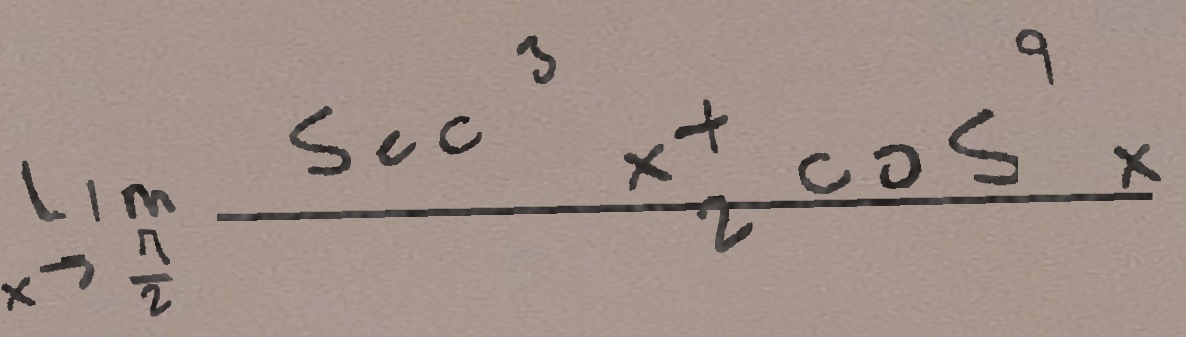 Lim x→π/2 (sec³ x + cos⁹ x)/2